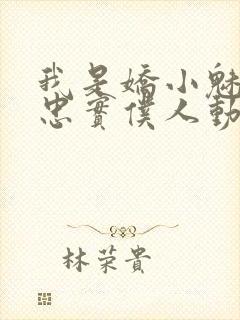 我是嬌小魅
忠實僕人動
林荣貴